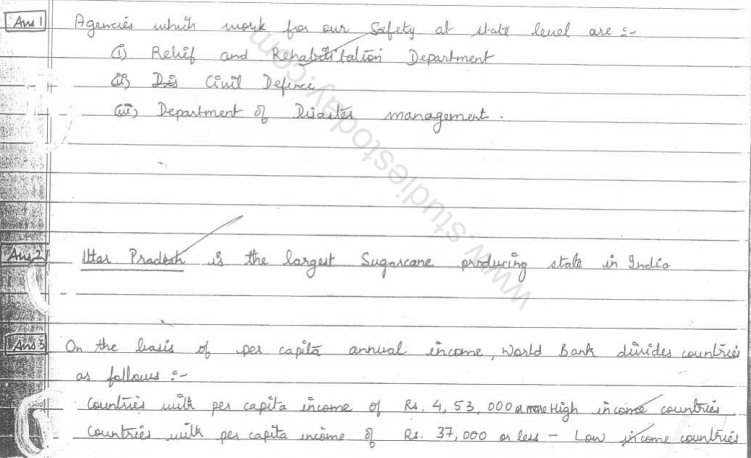 Ans 1 Agencies which work for our Safety at state level are :-
(i) Relief and Rehabitilation Department
(ii) Dis Civil Defince
(iii) Department of Disaster management.
Ans 2 Uttar Pradesh is the largest Sugarcane producing state in India
Ans 3 On the basis of per capita annual income, World Bank divides countries
as follows :-
Countries with per capita income of Rs. 4,53,000 or more High income countries
Countries with per capita income of Rs. 37,000 or less - Low income countries
www.studiestoday.com